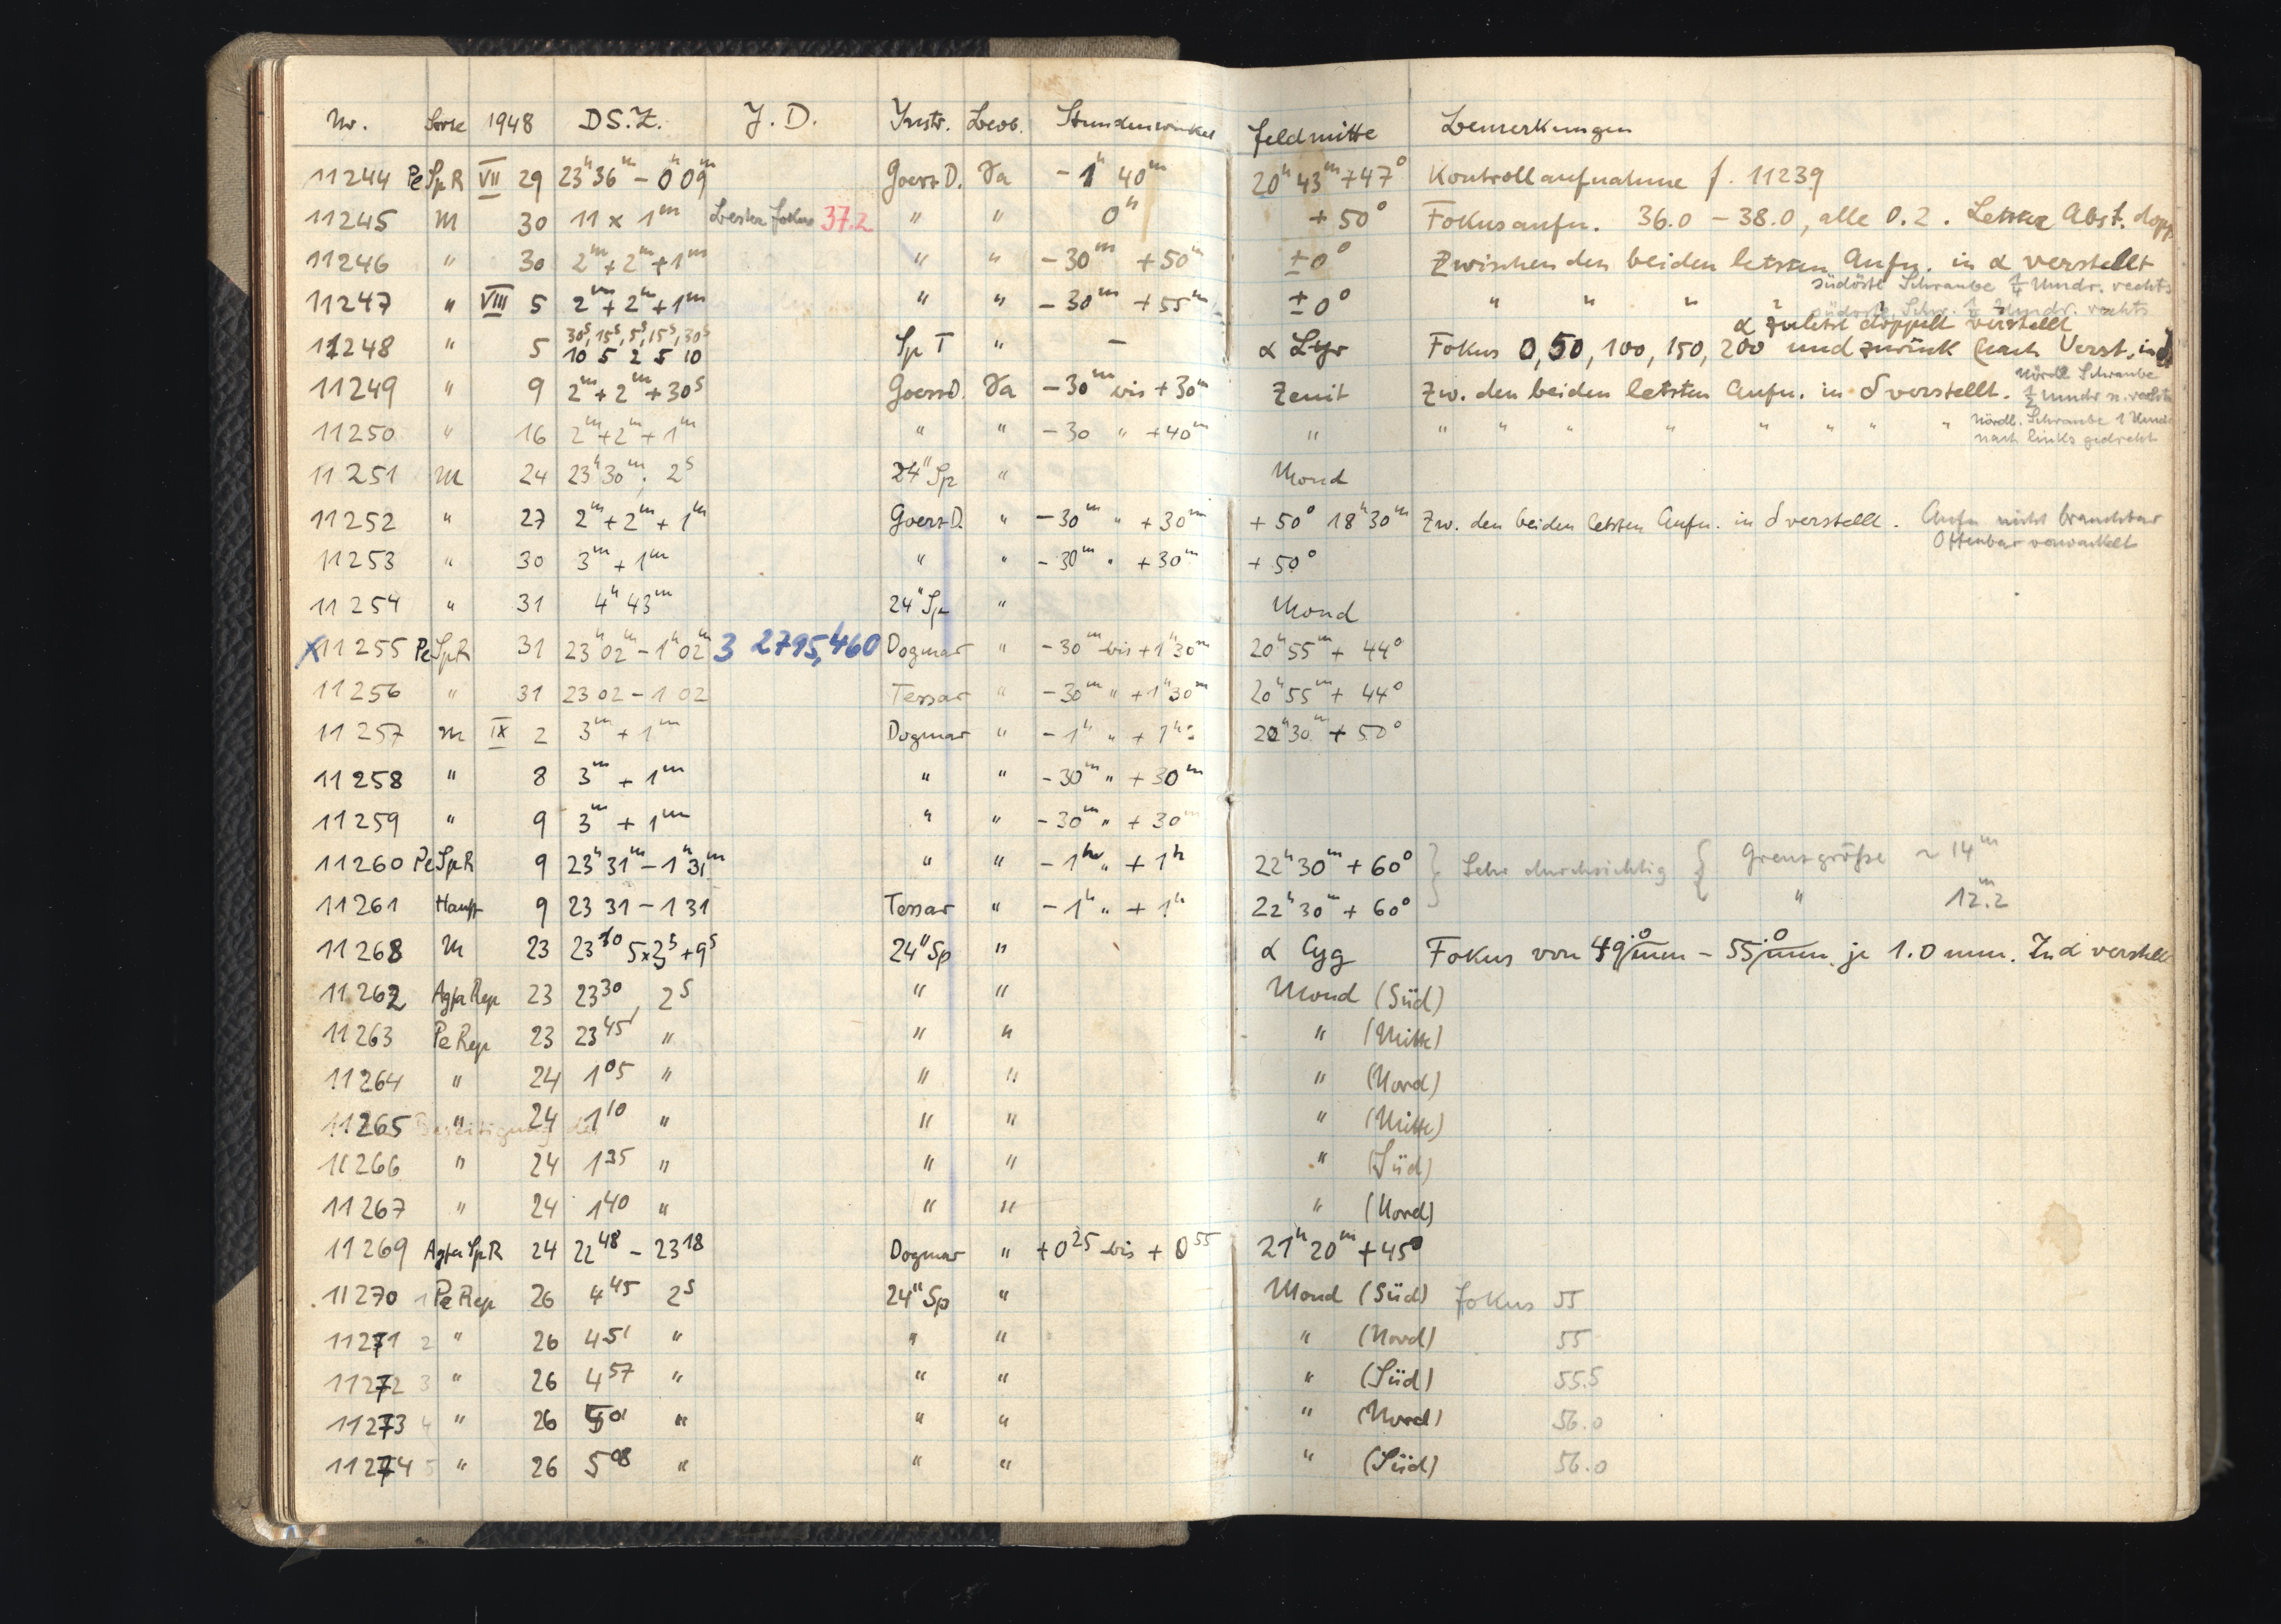 Nr. Sorte 1948 DS.Z. J. D. Instr. Beob. Stundenwinkel Feldmitte Bemerkungen
11244 Pe Sp R VII 29 23h 36m - 0h 09m Goerz D. - 1h 40m 20h 43m +47° Kontrollaufnahme f. 11239
11245 M 30 11 x 1m bester Fokus 37.2 " " 0h + 50° Fokusaufn. 36.0 - 38.0, alle 0.2. Letzter Abst. dopp
11246 " 30 2m + 2m + 1m " " - 30m + 50m ± 0° Zwischen den beiden letzten Aufn. in α verstellt
südöstl Schraube 1/4 Umdr. rechts
11247 " VIII 5 2m + 2m + 1m " " - 30m + 55m ± 0° " " " "
α zuletzt doppelt verstellt
30s, 15s, 5s, 15s, 30s
11248 " 5 10 5 2 5 10 Sp T " - α Lyr Fokus 0, 50, 100, 150, 200 und zurück (nach Verst. in
11249 " 9 2m + 2m + 30s Goerz D. - 30m bis + 30m Zenit Zw. den beiden letzten Aufn. in δ verstellt. Nördl Schraube
1/2 Umdr n. rechts
11250 " 16 2m + 2m + 1m " " - 30 " + 40m " " " " " " " " " Nördl. Schraube 1 Umdr
nach links gedreht
11251 M 24 23h 30m; 2s 24" Sp " Mond
11252 " 27 2m + 2m + 1m Goerz D. " - 30m " + 30m + 50° 18h 30m Zw. den beiden letzten Aufn. in δ verstellt. Aufn nicht brauchbar
Offenbar verwackelt
11253 " 30 3m + 1m " " - 30m " + 30m + 50°
11254 " 31 4h 43m 24" Sp " Mond
x 11255 Pe Sp R 31 23h 02m - 1h 02m 3 2795,460 Dogmar " - 30m bis + 1h 30m 20h 55m + 44°
11256 " 31 23 02 - 1 02 Tessar " - 30m " + 1h 30m 20h 55m + 44°
11257 M IX 2 3m + 1m Dogmar " - 1h " + 1h 22h 30m + 50°
11258 " 8 3m + 1m " " - 30m " + 30m
11259 " 9 3m + 1m " " - 30m " + 30m
11260 Pe Sp R 9 23h 31m - 1h 31m " " - 1h " + 1h 22h 30m + 60° } Sehr durchsichtig { Grenzgröße ~ 14m
11261 Hauff 9 23 31 - 1 31 Tessar " - 1h " + 1h 22h 30m + 60° " 12m.2
11268 M 23 5x + 9s 24" Sp " α Cyg Fokus von 49.0 mm - 55.0 mm je 1.0 mm. In α verstellt
11262 Agfa Rep 23 23 30 2s " " Mond (Süd)
11263 Pe Rep 23 23 45 " " " " (Mitte)
11264 " 24 1 05 " " " " (Nord)
11265 " 24 1 10 " " " " (Mitte)
11266 " 24 1 35 " " " " (Süd)
11267 " 24 1 40 " " " " (Nord)
11269 Agfa Sp R 24 22 48 - 23 18 Dogmar " + 0 25 bis + 0 55 21h 20m + 45°
11270 1 Pe Rep 26 4 45 2s 24" Sp " Mond (Süd) Fokus 55
11271 2 " 26 4 51 " " " " (Nord) 55
11272 3 " 26 4 57 " " " " (Süd) 55.5
11273 4 " 26 5 01 " " " " (Nord) 56.0
11274 5 " 26 5 08 " " " " (Süd) 56.0